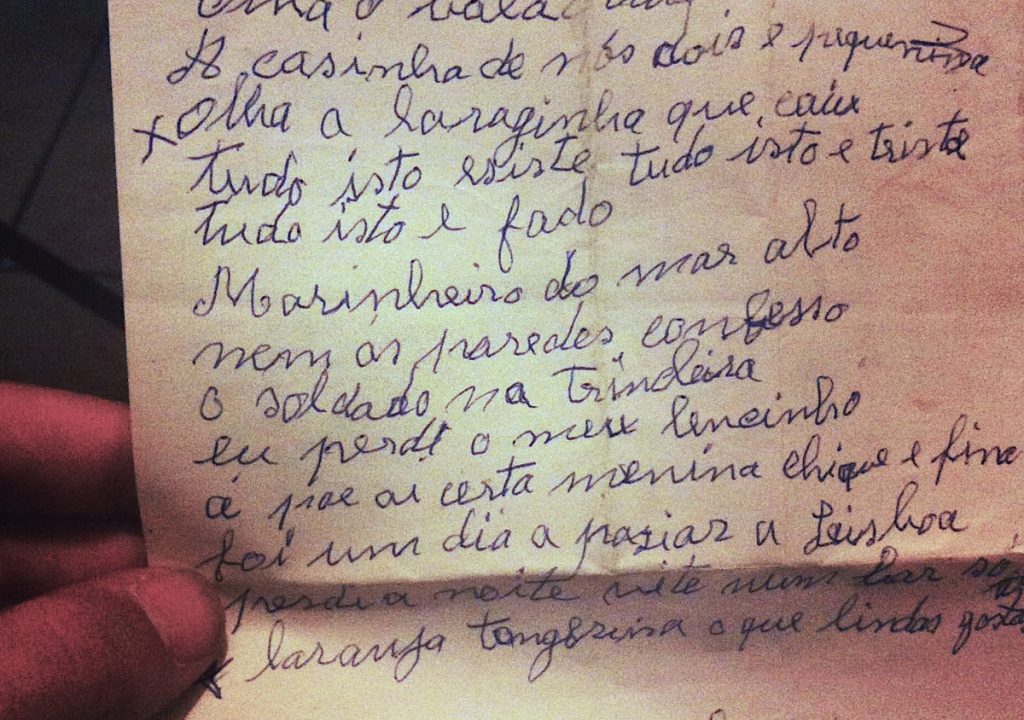 A casinha de nós dois e pequenina
x olha a laraginha que caiu
tudo isto esiste tudo isto e triste
tudo isto e fado
Marinheiro do mar alto
nem ás paredes confesso
o soldado na trindeira
eu perdi o meu lencinho
á poe ai certa menina chique e fina
foi um dia a pasiar a Leisboa
perdi a noite vite num bar
x laranja tangerina o que lindos